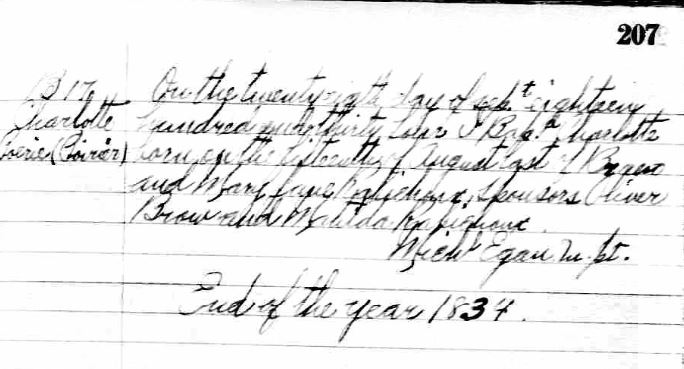 207
B 17
Charlotte
Poirier (Poirier)
On the twenty eighth day of sept eighteen
hundred and thirty four I Bap. Charlotte
born on the fifteenth of August last of
and Mary Jane Sponsors Oliver
Brow and Matilda
Mich Egan M. pt.
End of the year 1834.